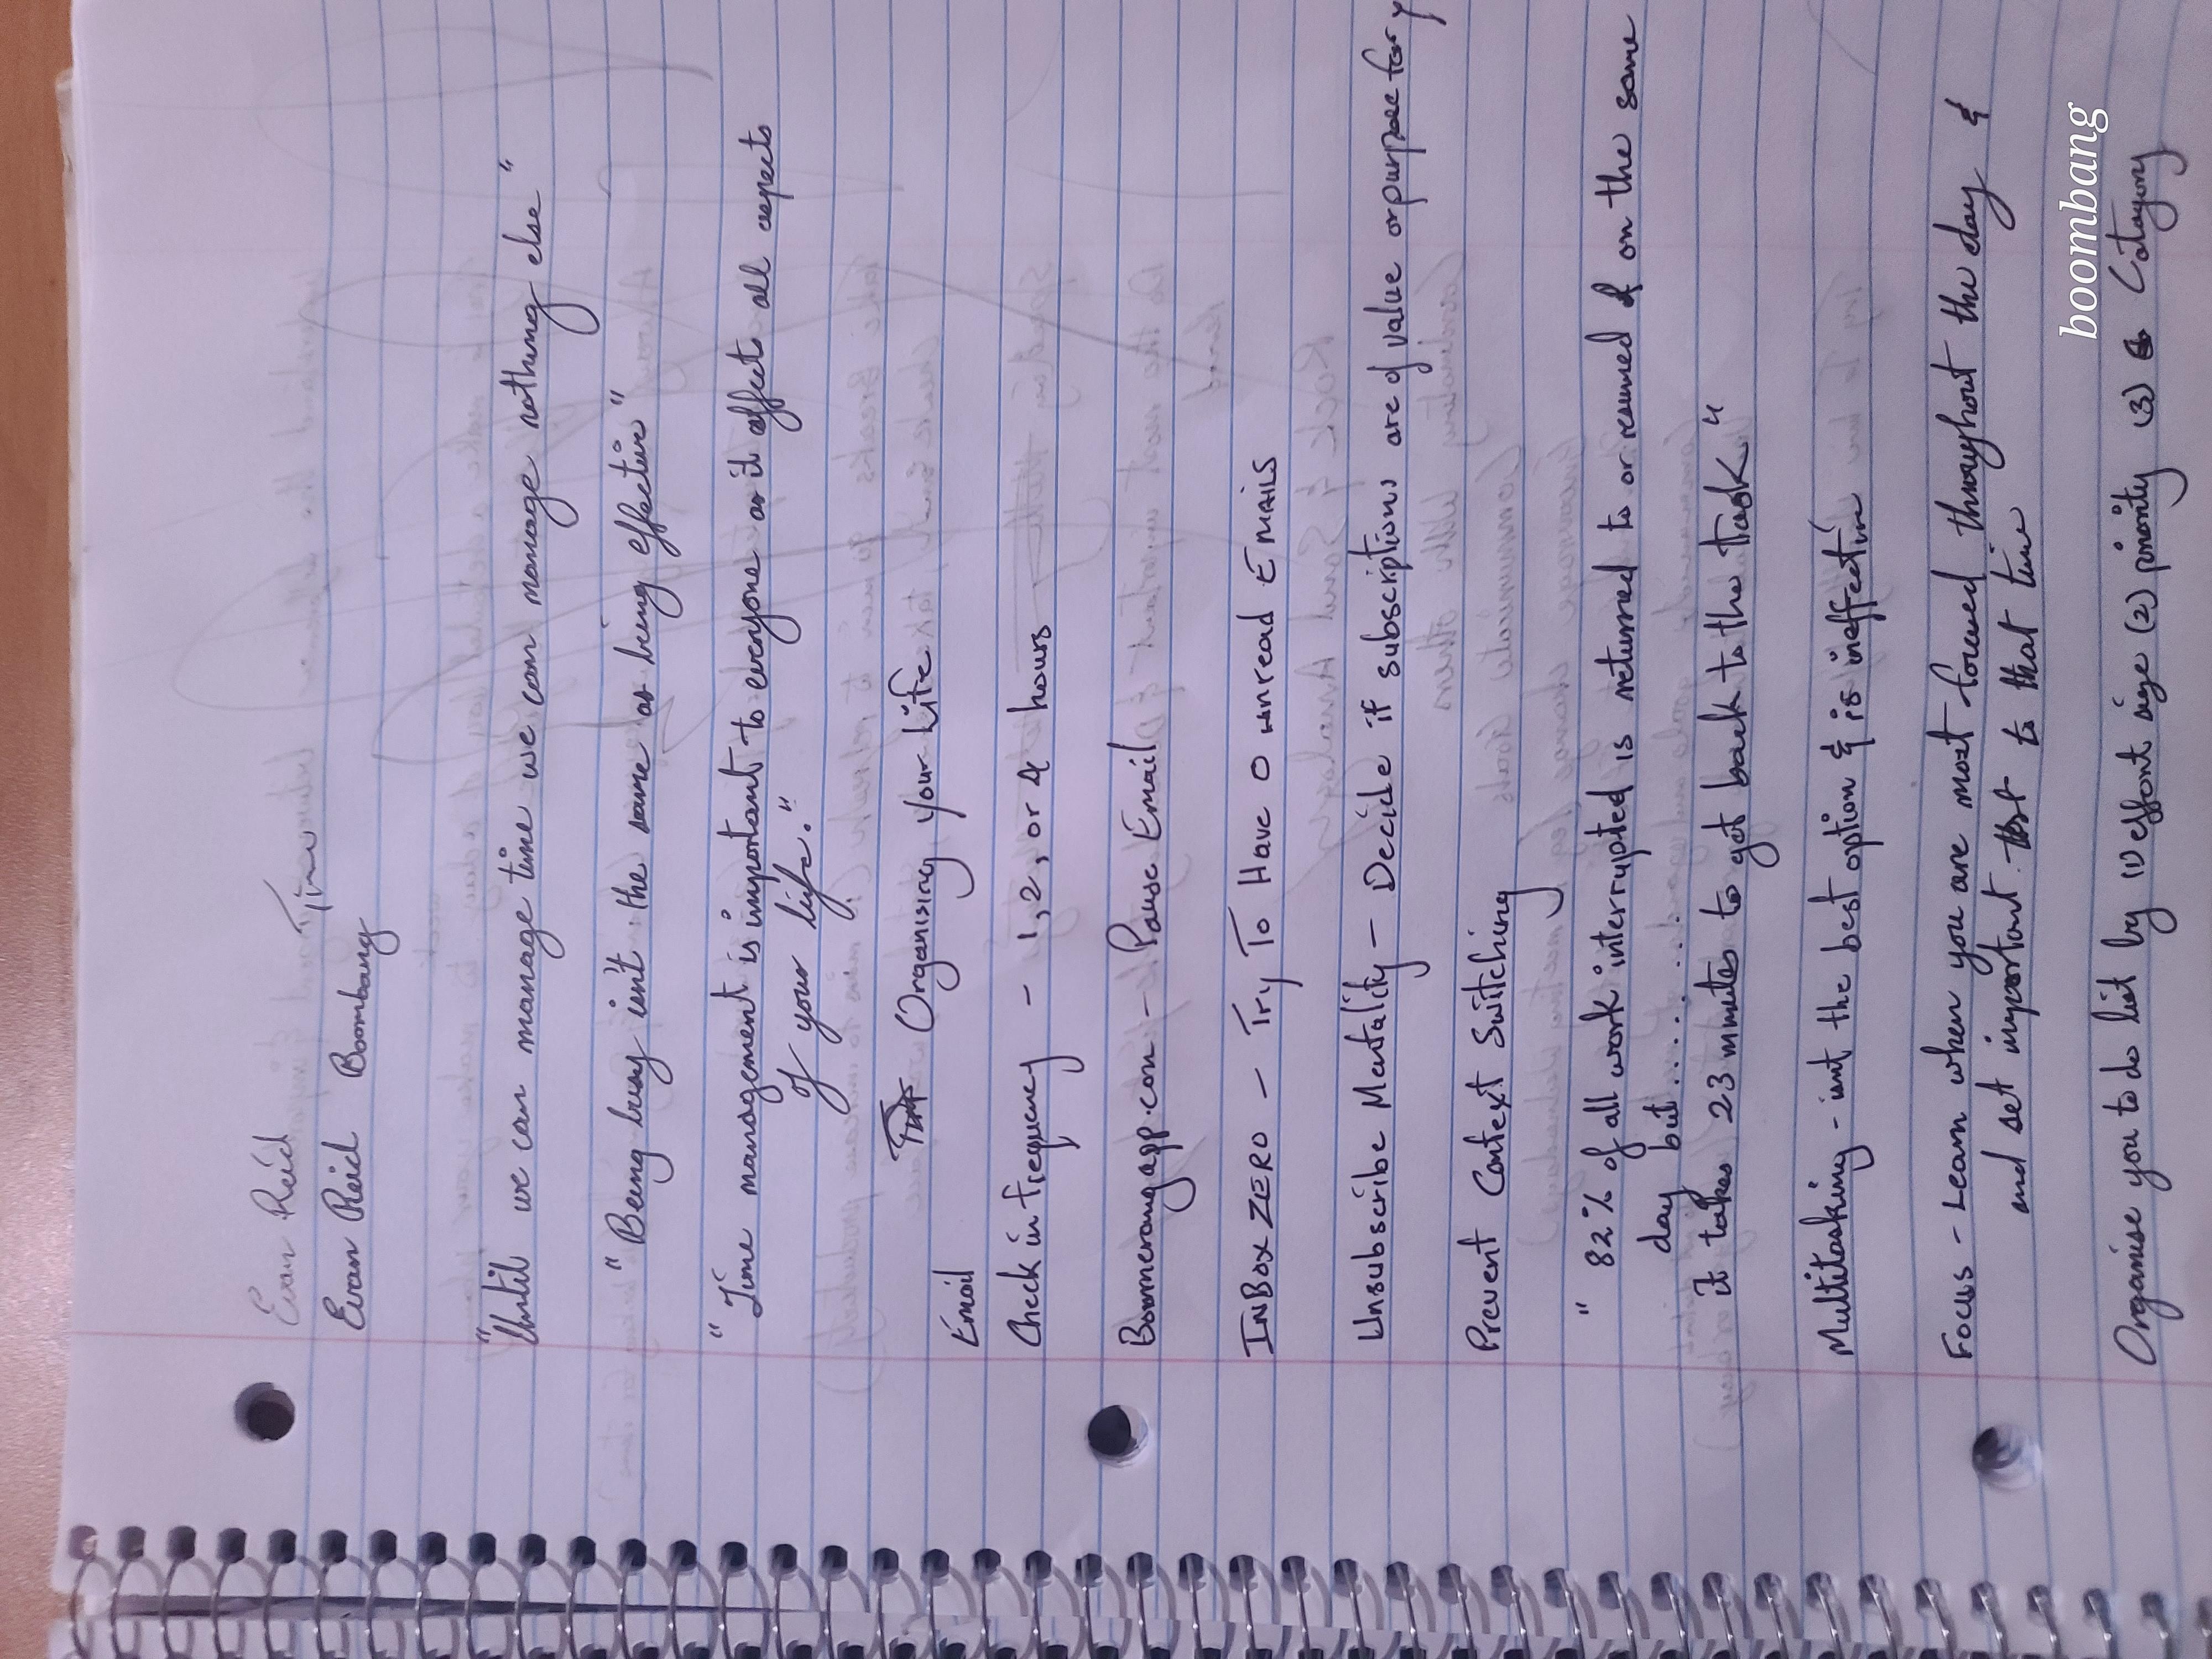 Evan Reid
Time
Evan Reid Boombang
"Until we can manage time we can manage nothing else"
"Being busy isn't the same as being effective"
"Time management is important to everyone as it affects all aspects
of your life."
Organising your Life
Email
Check in frequency - 1, 2, or 4 hours
Boomerangapp.com - Pause Email
INBOX ZERO - Try To Have 0 unread EMAILS
Unsubscribe Mentality - Decide if subscriptions are of value or purpose for y
Prevent Context Switching
" 82% of all work interrupted is returned to or resumed on the same
day but......
it takes 23 minutes to get back to the task"
Multitasking - isnt the best option & is ineffective
Focus - Learn when you are most focused throughout the day &
and set important to that time
boombang
Organise you to do list by (1) effort size (2) priority (3) Catagory